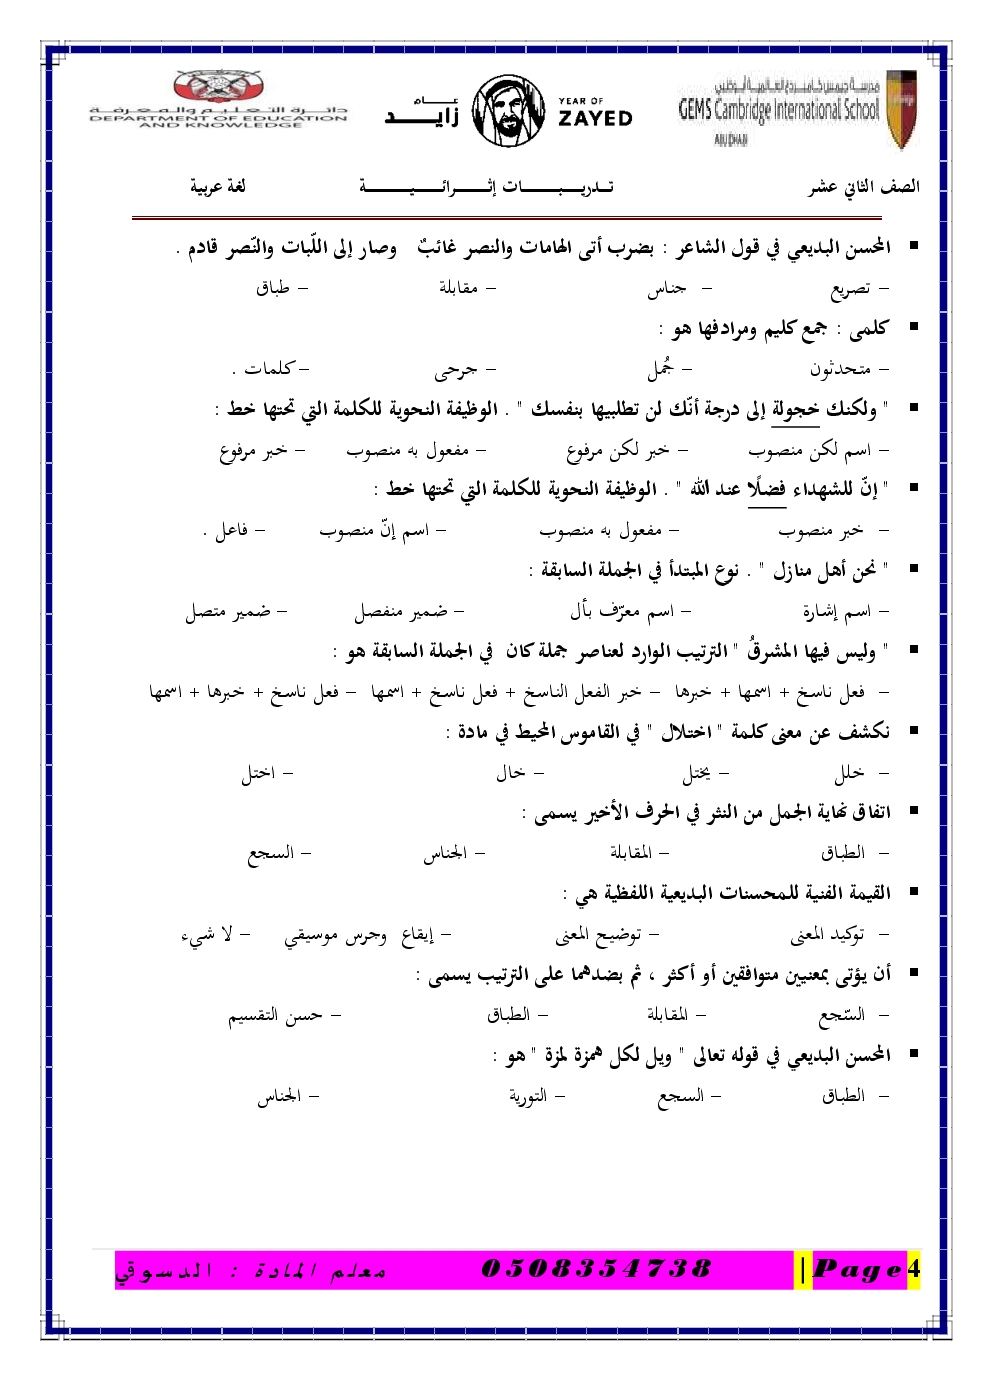 دائرة التعليم والمعرفة
DEPARTMENT OF EDUCATION
AND KNOWLEDGE
عام
زايد
YEAR OF
ZAYED
مدرسة جيمس كامبردج العالمية أبوظبي
GEMS Cambridge International School
ABU DHABI
الصف الثاني عشر تدريبات إثرائية لغة عربية
▪ المحسن البديعي في قول الشاعر : بضرب أتى الهامات والنصر غائبٌ وصار إلى اللّبات والنّصر قادم .
– تصريع – جناس – مقابلة – طباق
▪ كلمى : جمع كليم ومرادفها هو :
– متحدثون – جُمل – جرحى – كلمات .
▪ " ولكنك خجولة إلى درجة أنّك لن تطلبيها بنفسك " . الوظيفة النحوية للكلمة التي تحتها خط :
– اسم لكن منصوب – خبر لكن مرفوع – مفعول به منصوب – خبر مرفوع
▪ " إنّ للشهداء فضلًا عند الله " . الوظيفة النحوية للكلمة التي تحتها خط :
– خبر منصوب – مفعول به منصوب – اسم إنّ منصوب – فاعل .
▪ " نحن أهل منازل " . نوع المبتدأ في الجملة السابقة :
– اسم إشارة – اسم معرّف بأل – ضمير منفصل – ضمير متصل
▪ " وليس فيها المشرقُ " الترتيب الوارد لعناصر جملة كان في الجملة السابقة هو :
– فعل ناسخ + اسمها + خبرها – خبر الفعل الناسخ + فعل ناسخ + اسمها – فعل ناسخ + خبرها + اسمها
▪ نكشف عن معنى كلمة " اختلال " في القاموس المحيط في مادة :
– خلل – يختل – خال – اختل
▪ اتفاق نهاية الجمل من النثر في الحرف الأخير يسمى :
– الطباق – المقابلة – الجناس – السجع
▪ القيمة الفنية للمحسنات البديعية اللفظية هي :
– توكيد المعنى – توضيح المعنى – إيقاع وجرس موسيقي – لا شيء
▪ أن يؤتى بمعنيين متوافقين أو أكثر ، ثم بضدهما على الترتيب يسمى :
– السّجع – المقابلة – الطباق – حسن التقسيم
▪ المحسن البديعي في قوله تعالى " ويل لكل همزة لمزة " هو :
– الطباق – السجع – التورية – الجناس
معلم المادة : الدسوقي 0508354738 | Page 4